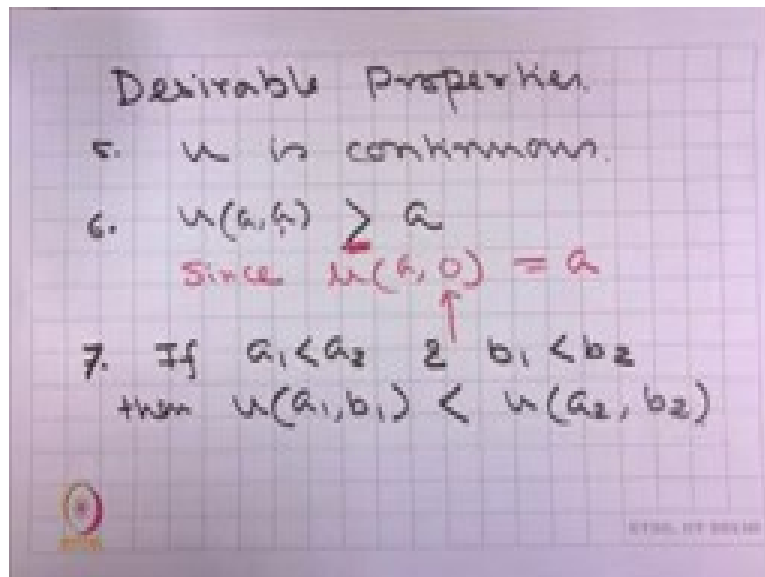 Desirable Properties.
5. u is continuous.
6. u(a,a) ≥ a
Since u(a,0) = a
7. If a₁<a₂ & b₁<b₂
then u(a₁,b₁) < u(a₂,b₂)
ETSC, IIT DELHI